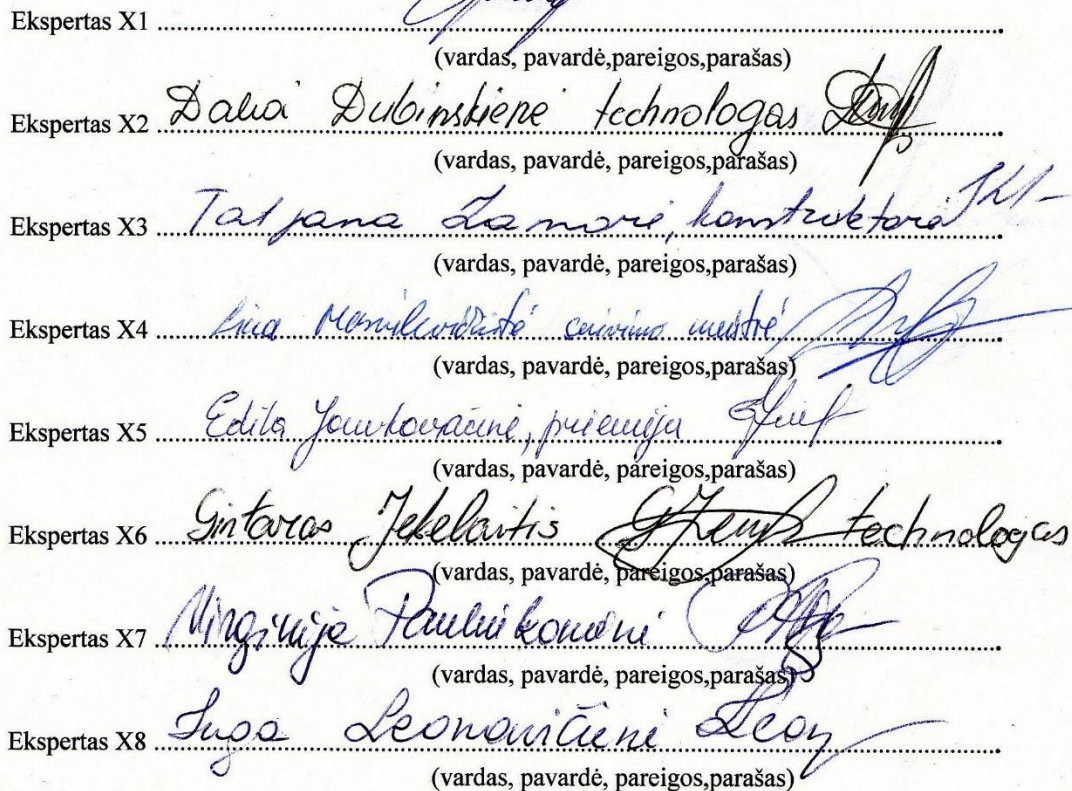 Ekspertas X1
(vardas, pavardė,pareigos,parašas)
Ekspertas X2 Dalia Dubinskienė technologas
(vardas, pavardė, pareigos,parašas)
Ekspertas X3 Tatjana konstruktorė
(vardas, pavardė, pareigos,parašas)
Ekspertas X4 Lina siuvimo meistrė
(vardas, pavardė, pareigos,parašas)
Ekspertas X5 Edita priėmėja
(vardas, pavardė, pareigos,parašas)
Ekspertas X6 Gintaras technologas
(vardas, pavardė, pareigos,parašas)
Ekspertas X7 Virginija
(vardas, pavardė, pareigos,parašas)
Ekspertas X8 Inga Leonavičienė
(vardas, pavardė, pareigos,parašas)